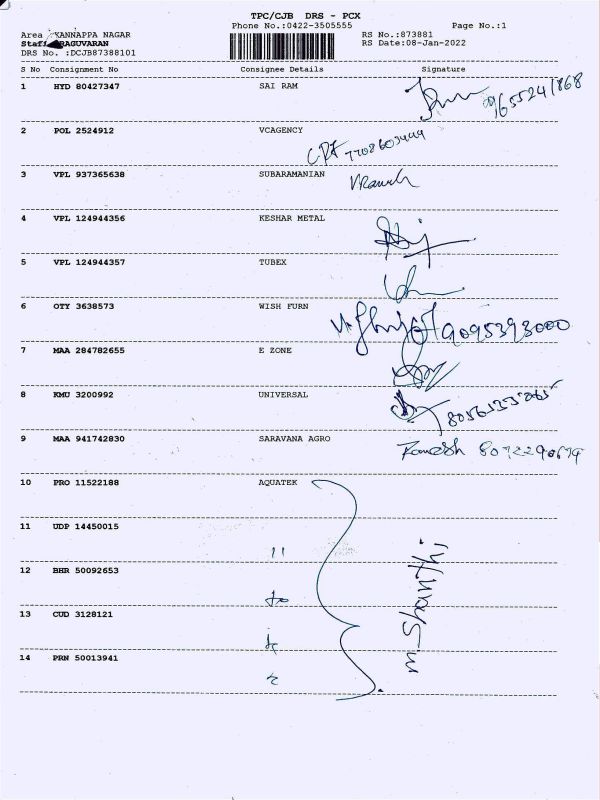 TPC/CJB DRS - PCX
Phone No.:0422-3505555 Page No.:1
Area KANNAPPA NAGAR RS No.:873881
Staff RAGUVARAN RS Date:08-Jan-2022
DRS No. :DCJB87388101
S No Consignment No Consignee Details Signature
1 HYD 80427347 SAI RAM
2 POL 2524912 VCAGENCY
3 VPL 937365638 SUBARAMANIAN
4 VPL 124944356 KESHAR METAL
5 VPL 124944357 TUBEX
6 OTY 3638573 WISH FURN 9095393000
7 MAA 284782655 E ZONE
8 KMU 3200992 UNIVERSAL
9 MAA 941742830 SARAVANA AGRO Ramesh
10 PRO 11522188 AQUATEK
11 UDP 14450015 11
12 BHR 50092653
13 CUD 3128121
14 PRN 50013941